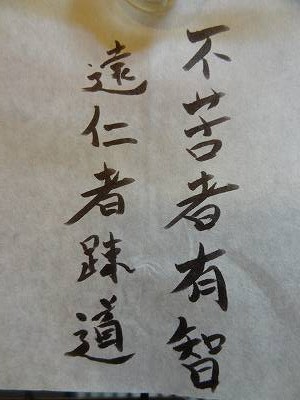 不苦者有智
遠仁者疎道